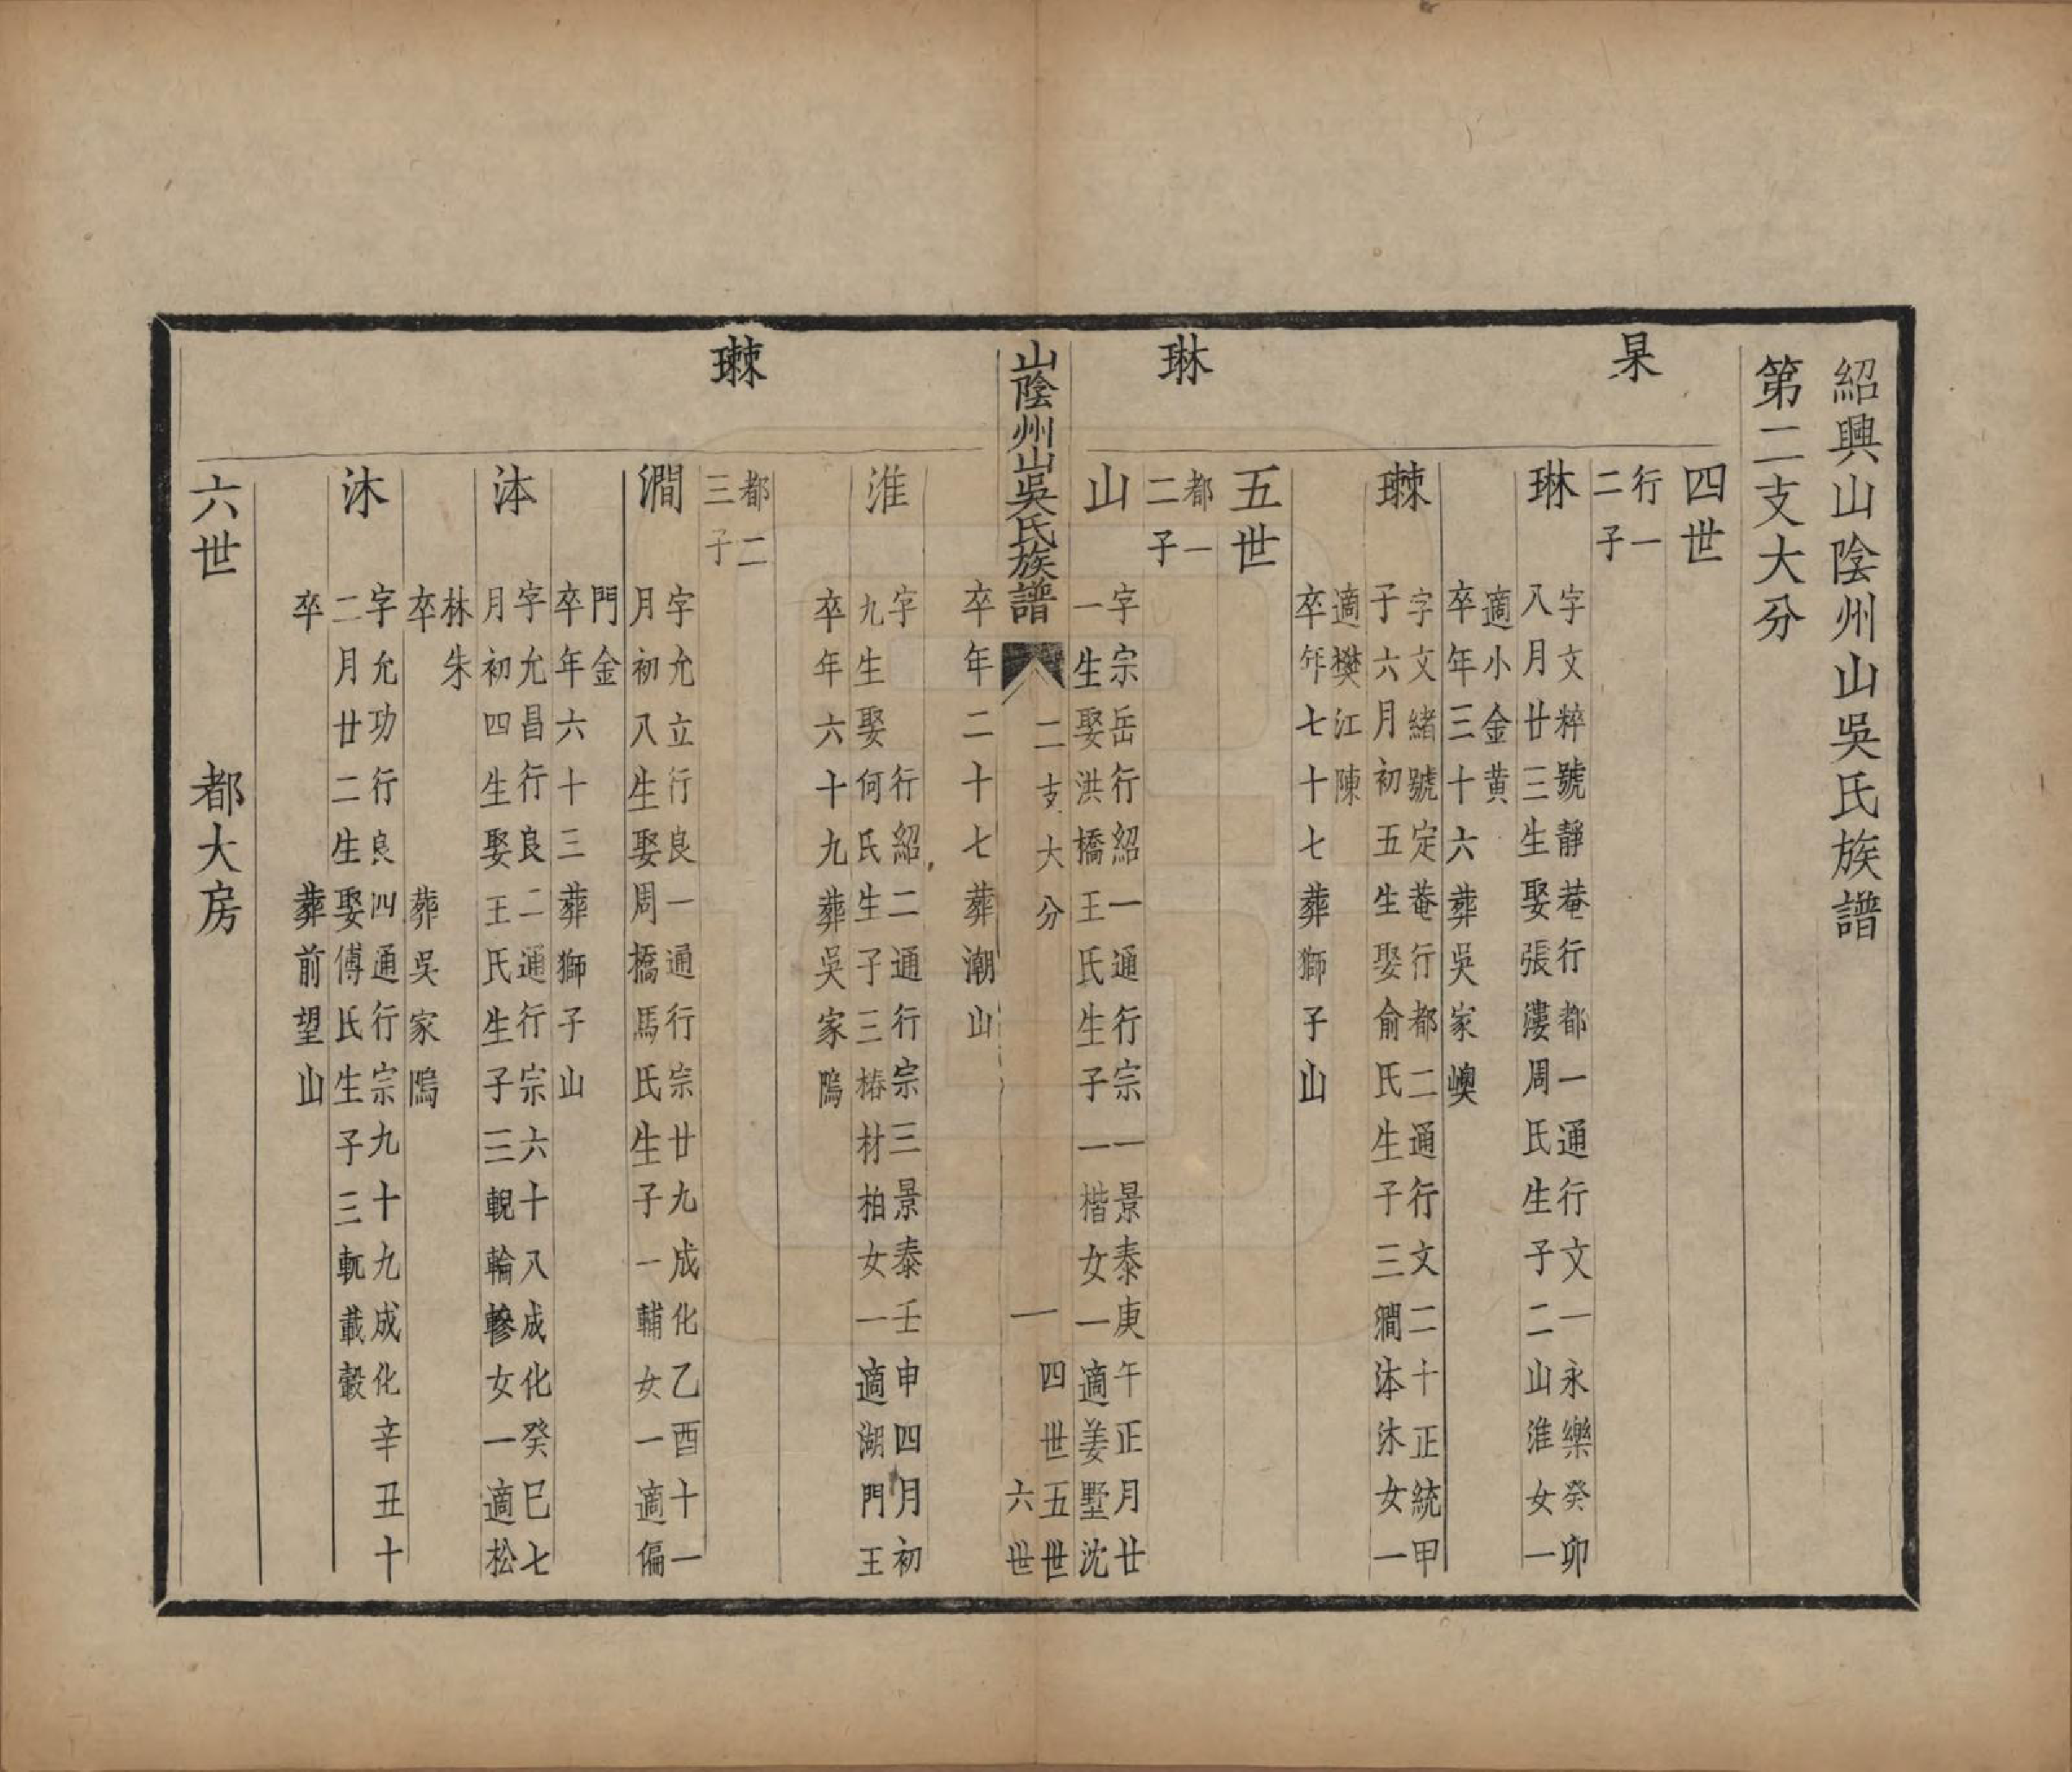 紹興山陰州山吳氏族譜
第二支大分
四世
杲
行一
二子
琳
字文粹號靜菴行都一通行文一永樂癸卯
八月廿三生娶張漊周氏生子二山淮女一
適小金黄
卒年三十六葬吳家㠗
字文緒號定菴行都二通行文二十正統甲
子六月初五生娶俞氏生子三澗泍沐女一
適樊江陳
卒年七十七葬獅子山
五世
琳
都一
二子
山
字宗岳行紹一通行宗一景泰庚午正月廿
一生娶洪橋王氏生子一楷女一適姜墅沈
山陰州山吳氏族譜
二支大分
一
四世五世
六世
卒年二十七葬潮山
淮
字 行紹二通行宗三景泰壬申四月初
九生娶何氏生子三椿材柏女一適湖門王
卒年六十九葬吳家隝
都二
三子
澗
字允立行良一通行宗廿九成化乙酉十一
月初八生娶周橋馬氏生子一輔女一適偏
門金
卒年六十三葬獅子山
泍
字允昌行良二通行宗六十八成化癸巳七
月初四生娶王氏生子三輗輪轇女一適松
林朱
卒 葬吳家隝
沐
字允功行良四通行宗九十九成化辛丑十
二月廿二生娶傅氏生子三軏載轂
卒 葬前望山
六世 都大房